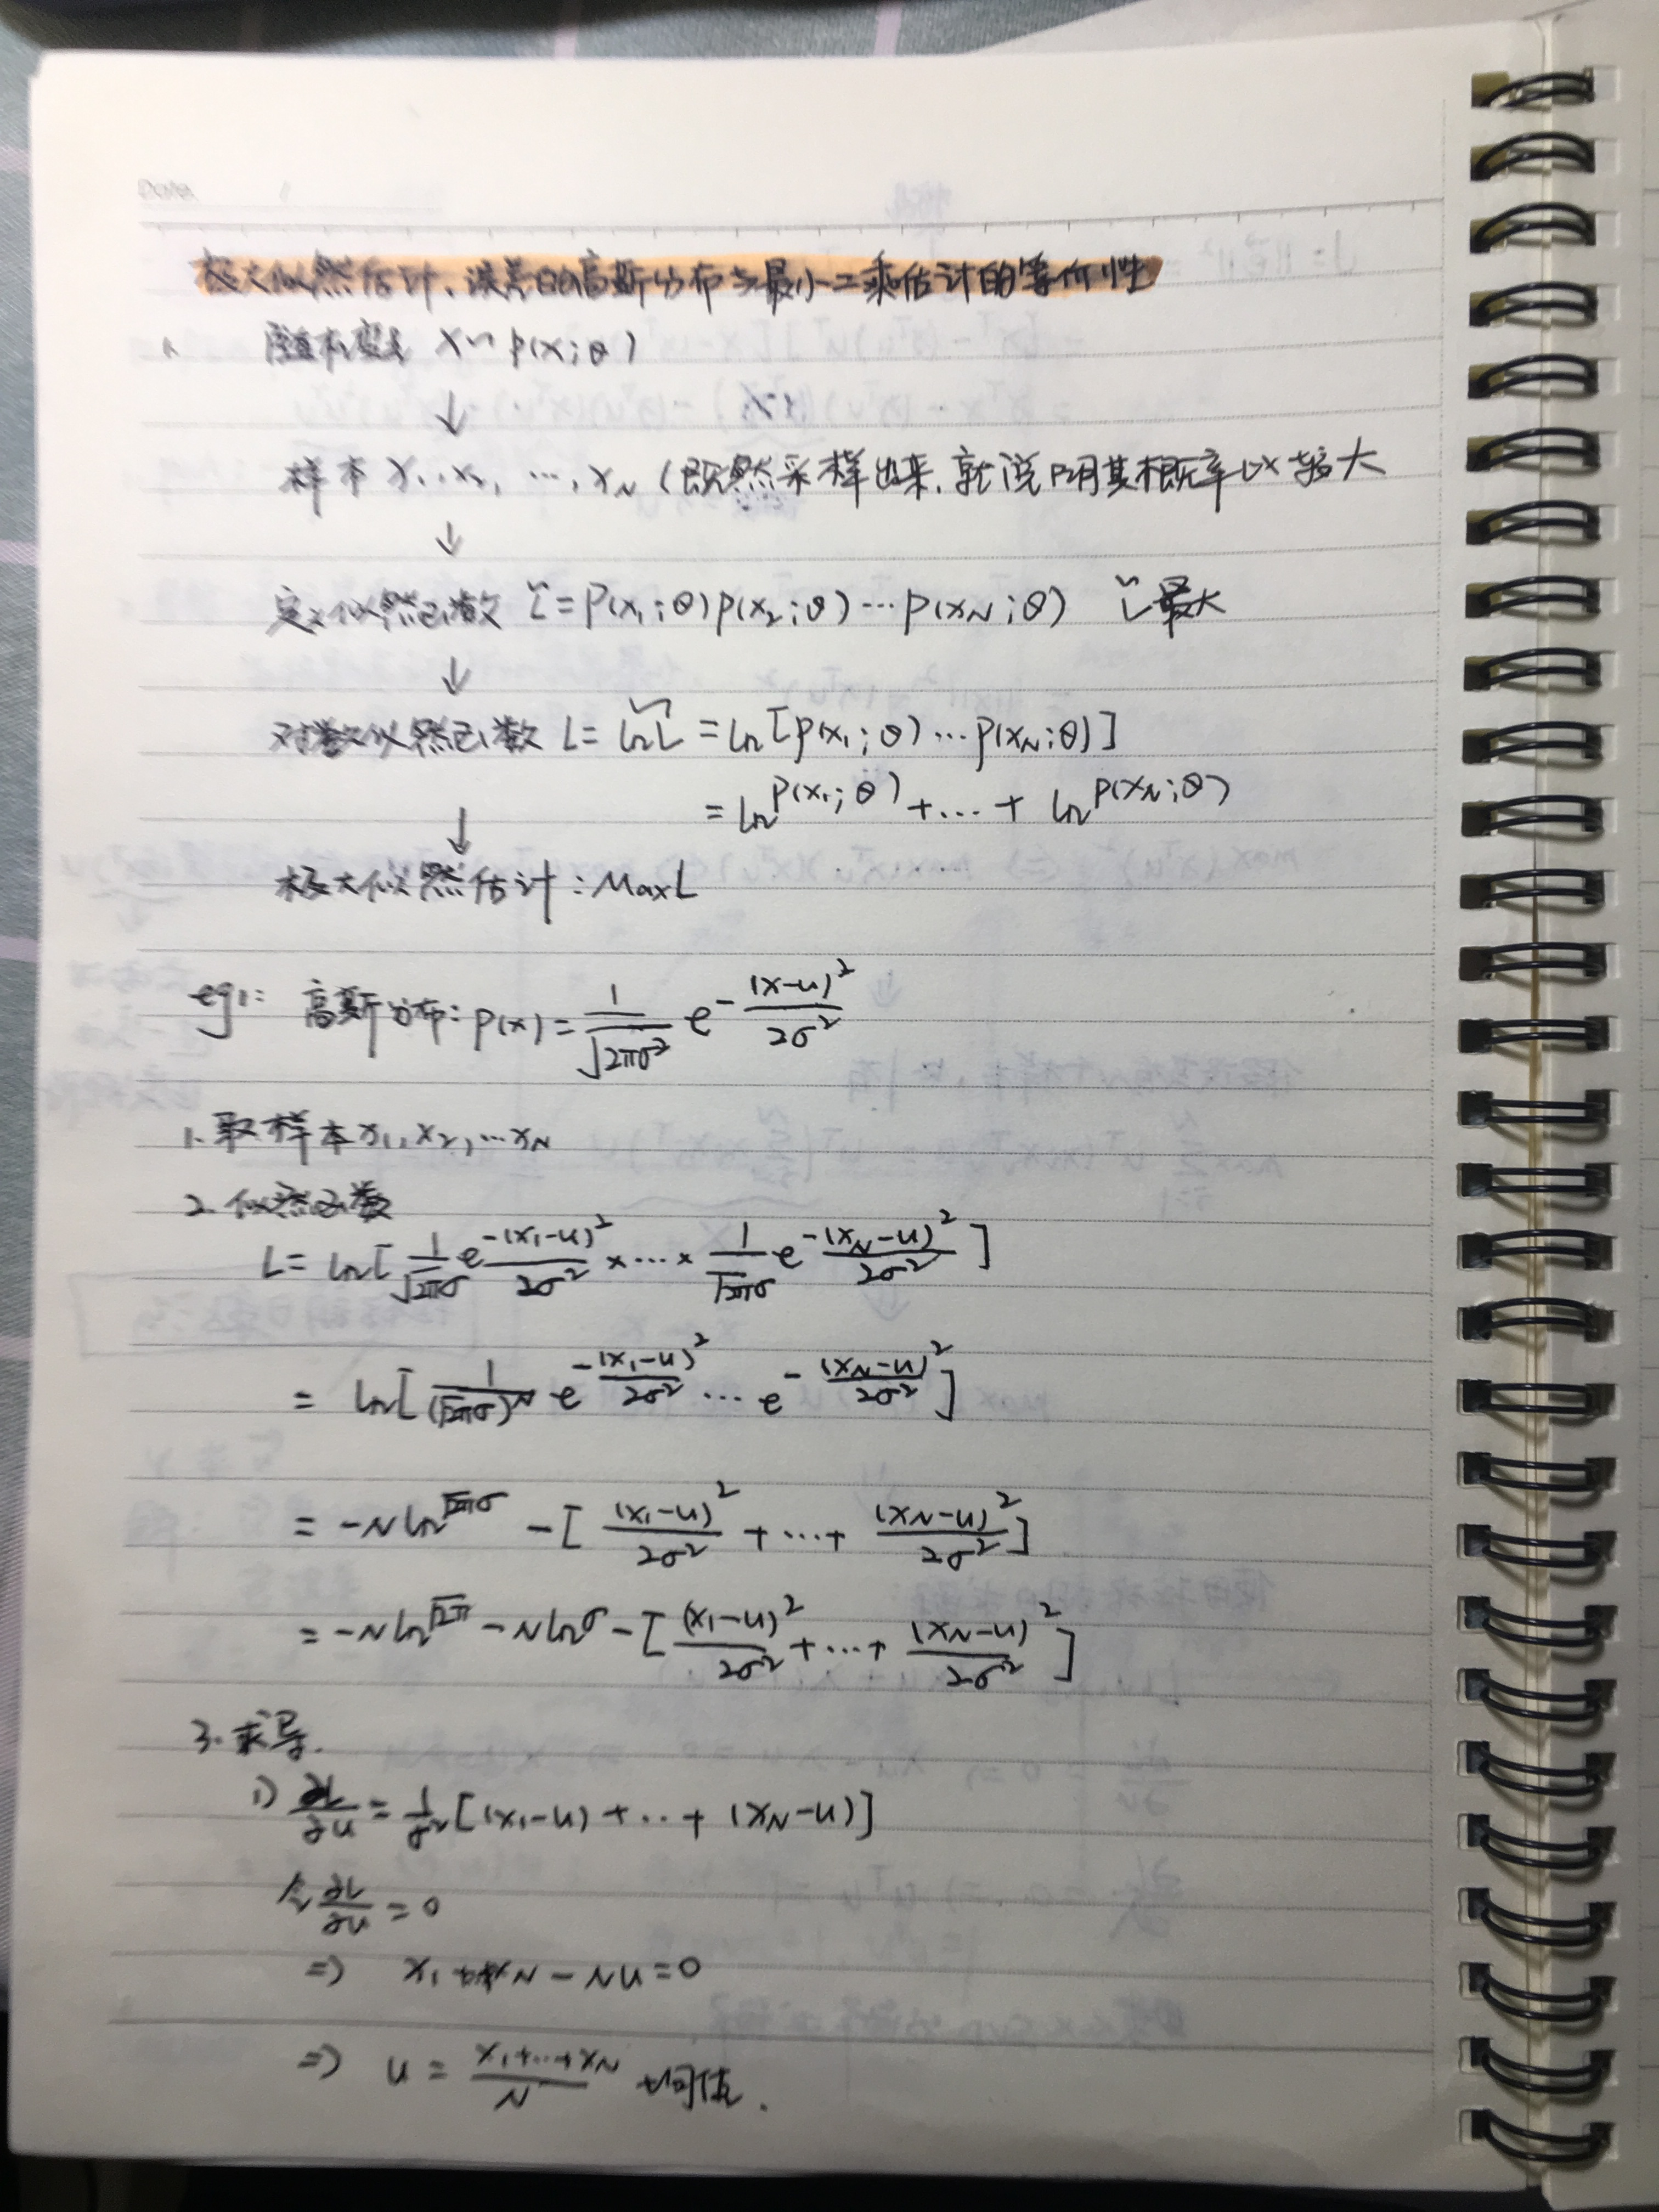 Date.
极大似然估计、误差的高斯分布与最小二乘估计的等价性
1. 随机变量 X~p(x;θ)
↓
样本 x₁,x₂,…,x_N (既然采样出来,就说明其概率比较大
↓
定义似然函数 L̃=p(x₁;θ)p(x₂;θ)…p(x_N;θ) L̃最大
↓
对数似然函数 L=lnL̃=ln[p(x₁;θ)…p(x_N;θ)]
=ln^{p(x₁;θ)}+…+ln^{p(x_N;θ)}
↓
极大似然估计:Max L
eg1: 高斯分布:p(x)=\frac{1}{\sqrt{2πσ²}} e^{-\frac{(x-u)²}{2σ²}}
1. 取样本x₁,x₂,…x_N
2. 似然函数
L=ln[\frac{1}{\sqrt{2π}σ}e^{\frac{-(x₁-u)²}{2σ²}}×…×\frac{1}{\sqrt{2π}σ}e^{\frac{-(x_N-u)²}{2σ²}}]
=ln[\frac{1}{(\sqrt{2π}σ)^N} e^{-\frac{(x₁-u)²}{2σ²}}…e^{-\frac{(x_N-u)²}{2σ²}}]
=-Nln^{\sqrt{2π}σ}-[\frac{(x₁-u)²}{2σ²}+…+\frac{(x_N-u)²}{2σ²}]
=-Nln^{\sqrt{2π}}-Nln^{σ}-[\frac{(x₁-u)²}{2σ²}+…+\frac{(x_N-u)²}{2σ²}]
3. 求导.
1) \frac{∂L}{∂u}=\frac{1}{σ²}[(x₁-u)+…+(x_N-u)]
令\frac{∂L}{∂u}=0
⇒ x₁+…+x_N-Nu=0
⇒ u=\frac{x₁+…+x_N}{N} 均值.